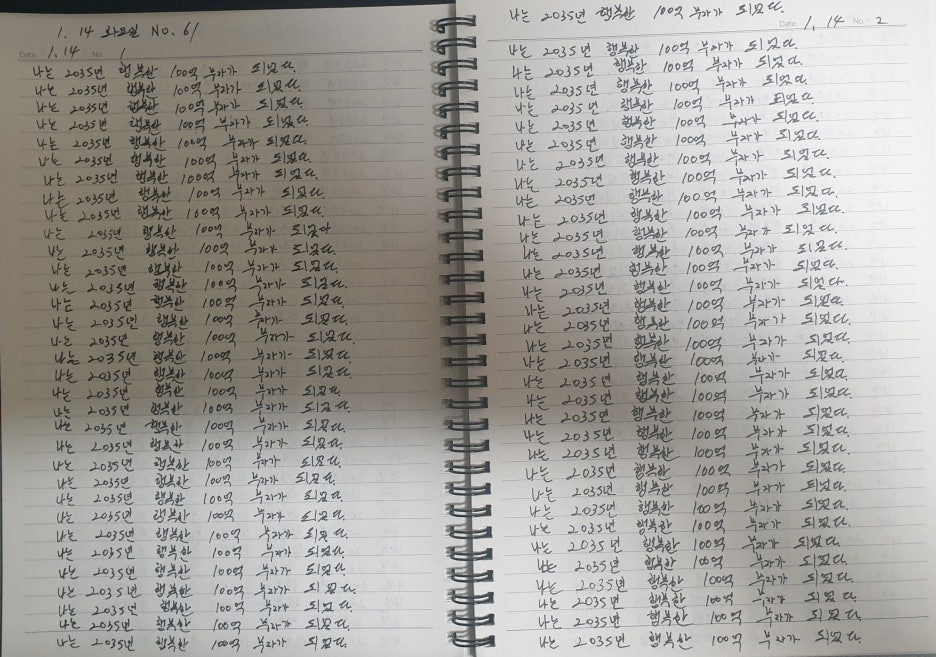 1. 14 화요일 No. 61
Date 1.14 No 1
나는 2035년 행복한 100억 부자가 되었다.
나는 2035년 행복한 100억 부자가 되었다.
나는 2035년 행복한 100억 부자가 되었다.
나는 2035년 행복한 100억 부자가 되었다.
나는 2035년 행복한 100억 부자가 되었다.
나는 2035년 행복한 100억 부자가 되었다.
나는 2035년 행복한 100억 부자가 되었다.
나는 2035년 행복한 100억 부자가 되었다.
나는 2035년 행복한 100억 부자가 되었다.
나는 2035년 행복한 100억 부자가 되었다
나는 2035년 행복한 100억 부자가 되었다.
나는 2035년 행복한 100억 부자가 되었다.
나는 2035년 행복한 100억 부자가 되었다.
나는 2035년 행복한 100억 부자가 되었다.
나는 2035년 행복한 100억 부자가 되었다.
나는 2035년 행복한 100억 부자가 되었다.
나는 2035년 행복한 100억 부자가 되었다.
나는 2035년 행복한 100억 부자가 되었다.
나는 2035년 행복한 100억 부자가 되었다.
나는 2035년 행복한 100억 부자가 되었다.
나는 2035년 행복한 100억 부자가 되었다.
나는 2035년 행복한 100억 부자가 되었다.
나는 2035년 행복한 100억 부자가 되었다.
나는 2035년 행복한 100억 부자가 되었다.
나는 2035년 행복한 100억 부자가 되었다.
나는 2035년 행복한 100억 부자가 되었다.
나는 2035년 행복한 100억 부자가 되었다.
나는 2035년 행복한 100억 부자가 되었다.
나는 2035년 행복한 100억 부자가 되었다.
나는 2035년 행복한 100억 부자가 되었다.
나는 2035년 행복한 100억 부자가 되었다.
나는 2035년 행복한 100억 부자가 되었다.
나는 2035년 행복한 100억 부자가 되었다.
나는 2035년 행복한 100억 부자가 되었다.
Date 1. 14 No. 2
나는 2035년 행복한 100억 부자가 되었다.
나는 2035년 행복한 100억 부자가 되었다.
나는 2035년 행복한 100억 부자가 되었다.
나는 2035년 행복한 100억 부자가 되었다.
나는 2035년 행복한 100억 부자가 되었다.
나는 2035년 행복한 100억 부자가 되었다.
나는 2035년 행복한 100억 부자가 되었다.
나는 2035년 행복한 100억 부자가 되었다.
나는 2035년 행복한 100억 부자가 되었다.
나는 2035년 행복한 100억 부자가 되었다.
나는 2035년 행복한 100억 부자가 되었다.
나는 2035년 행복한 100억 부자가 되었다.
나는 2035년 행복한 100억 부자가 되었다.
나는 2035년 행복한 100억 부자가 되었다.
나는 2035년 행복한 100억 부자가 되었다.
나는 2035년 행복한 100억 부자가 되었다.
나는 2035년 행복한 100억 부자가 되었다.
나는 2035년 행복한 100억 부자가 되었다.
나는 2035년 행복한 100억 부자가 되었다.
나는 2035년 행복한 100억 부자가 되었다.
나는 2035년 행복한 100억 부자가 되었다.
나는 2035년 행복한 100억 부자가 되었다.
나는 2035년 행복한 100억 부자가 되었다.
나는 2035년 행복한 100억 부자가 되었다.
나는 2035년 행복한 100억 부자가 되었다.
나는 2035년 행복한 100억 부자가 되었다.
나는 2035년 행복한 100억 부자가 되었다.
나는 2035년 행복한 100억 부자가 되었다.
나는 2035년 행복한 100억 부자가 되었다.
나는 2035년 행복한 100억 부자가 되었다.
나는 2035년 행복한 100억 부자가 되었다.
나는 2035년 행복한 100억 부자가 되었다.
나는 2035년 행복한 100억 부자가 되었다.
나는 2035년 행복한 100억 부자가 되었다.